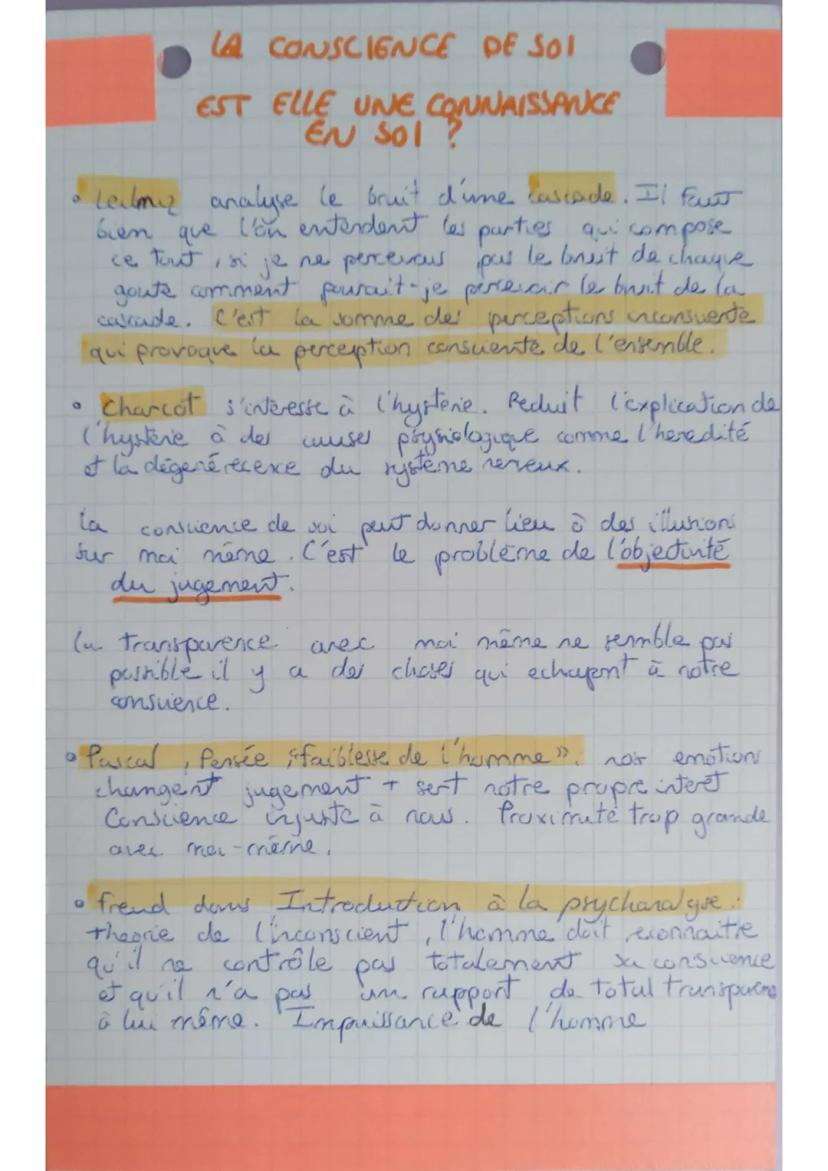 LA CONSCIENCE DE SOI
EST ELLE UNE CONNAISSANCE
EN SOI ?
• Leibniz analyse le bruit d'une cascade. Il faut
bien que l'on entendent les parties qui compose
ce tout, si je ne percevais pas le bruit de chaque
goute comment pourait-je percevoir le bruit de la
cascade. C'est la somme des perceptions inconsciente
qui provoque la perception consciente de l'ensemble.
• Charcot s'intéresse à l'hysterie. Reduit l'explication de
l'hystérie à des causes physiologique comme l'heredité
et la dégenérecence du système nerveux.
La conscience de soi peut donner lieu à des illusions
sur moi même. C'est le problème de l'objectivité
du jugement.
La transparence avec moi même ne semble pas
possible il y a des choses qui echapent à notre
conscience.
• Pascal, Pensée "faiblesse de l'homme". nos emotions
changent jugement + sert notre propre interet
Conscience injuste à nous. Proximité trop grande
avec moi-même.
• Freud dans Introduction à la psychanalyse :
theorie de l'inconscient, l'homme doit reconnaitre
qu'il ne contrôle pas totalement sa conscience
et qu'il n'a pas un rapport de total transparence
à lui même. Impuissance de l'homme